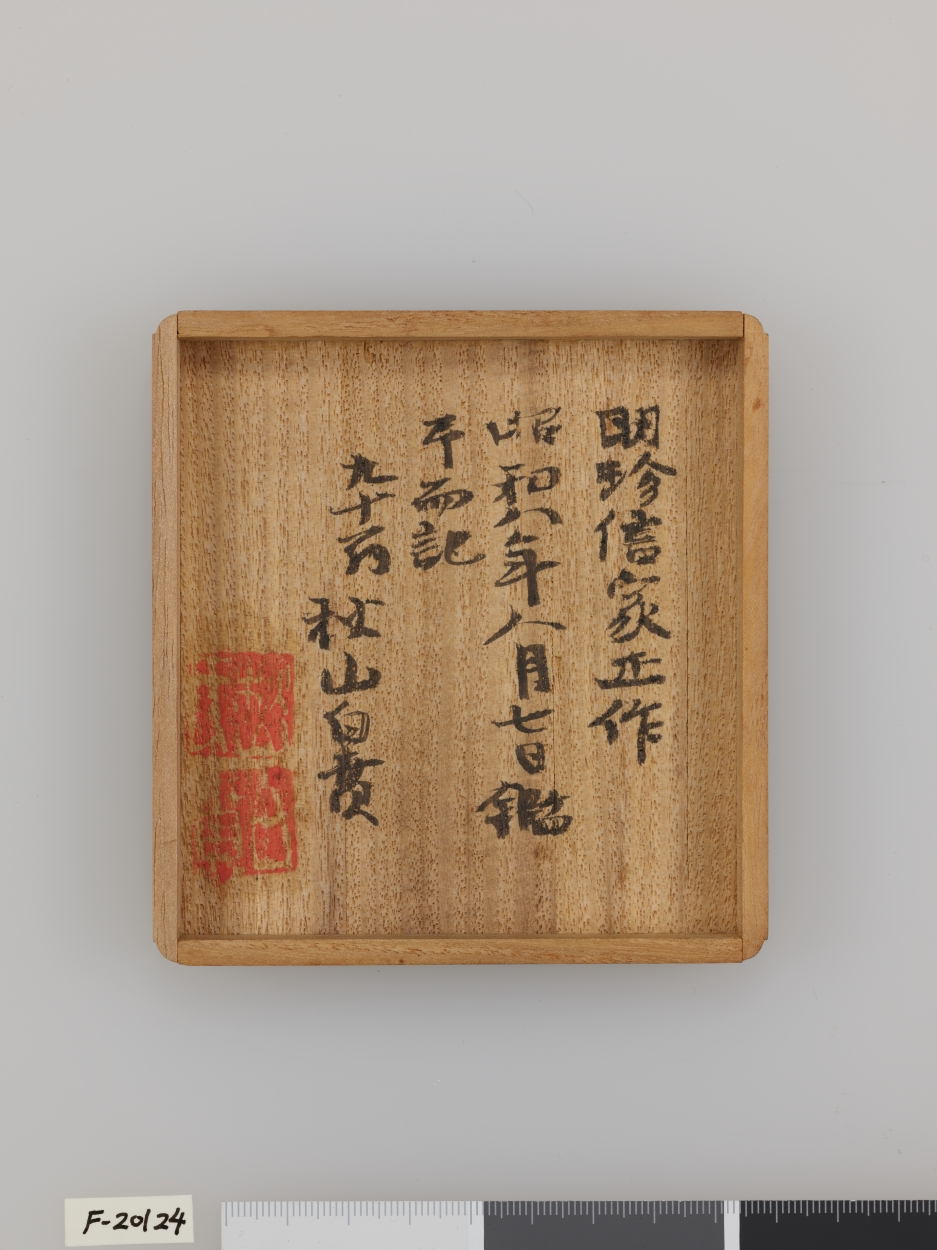 明珍信家正作
昭和八年八月七日鑑
于而記
九十翁 秋山白賁
F-20124